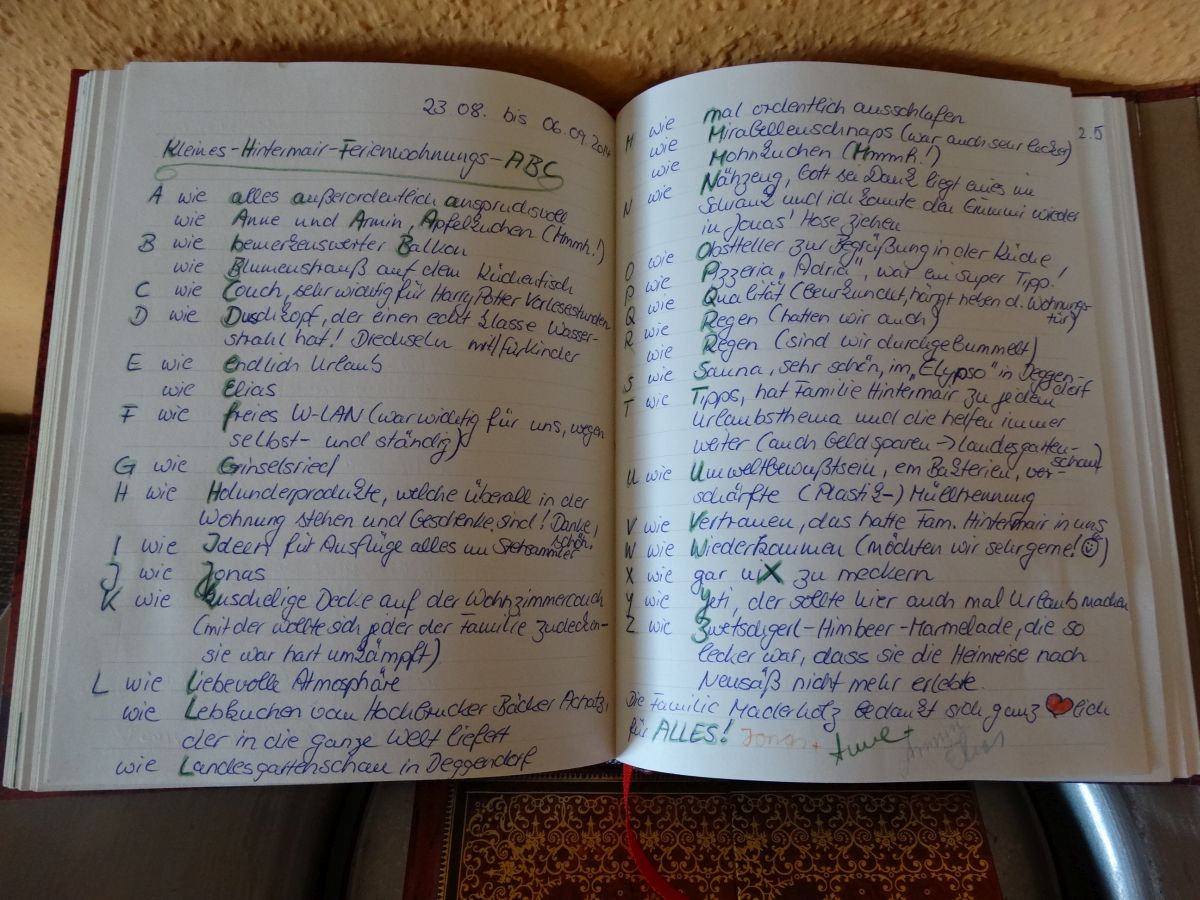 23.08. bis 06.09.2014
Kleines-Hintermair-Ferienwohnungs-ABC
A wie alles außerordentlich anspruchsvoll
wie Anne und Armin, Apfelkuchen (Hmmh!)
B wie bemerkenswerter Balkon
wie Blumenstrauß auf dem Küchentisch
C wie Couch, sehr wichtig für Harry Potter Vorlesestunden
D wie Duschkopf, der einen echt klasse Wasser-
strahl hat! Drechseln mit/für Kinder
E wie endlich Urlaub
wie Elias
F wie freies W-LAN (war wichtig für uns, wegen
selbst- und ständig)
G wie Ginselsried
H wie Holunderprodukte, welche überall in der
Wohnung stehen und Geschenke sind! Danke-
schön,
I wie Ideen für Ausflüge alles im
J wie Jonas
K wie Kuschelige Decke auf der Wohnzimmercouch
(mit der wollte sich jeder der Familie zudecken-
sie war hart umkämpft)
L wie Liebevolle Atmosphäre
wie Lebkuchen vom Hochbrucker Bäcker
der in die ganze Welt liefert
wie Landesgartenschau in Deggendorf
M wie mal ordentlich ausschlafen
wie Mirabellenschnaps (war auch sehr lecker)
wie Mohnkuchen (Hmmh!)
N wie Nähzeug, Gott sei Dank liegt eines im
Schrank und ich konnte den Gummi wieder
in Jonas' Hose ziehen
O wie Obstteller zur Begrüßung in der Küche!
P wie Pizzeria „Adria", war ein super Tipp!
Q wie Qualität (Beurkundet, hängt neben d. Wohnungs-
tür)
R wie Regen (hatten wir auch)
wie Regen (sind wir durchgebummelt)
S wie Sauna, sehr schön, im „Elypso" in Deggen-
dorf
T wie Tipps, hat Familie Hintermair zu jedem
Urlaubsthema und die helfen immer
weiter (auch Geld sparen → Landesgarten-
schau)
U wie Umweltbewußtsein, em Bakterien, ver-
schärfte (Plastik-) Mülltrennung
V wie Vertrauen, das hatte Fam. Hintermair in uns
W wie Wiederkommen (möchten wir sehr gerne! ☺)
X wie gar niX zu meckern
Y wie Yeti, der sollte hier auch mal Urlaub machen
Z wie Zwetschgerl-Himbeer-Marmelade, die so
lecker war, dass sie die Heimreise nach
Neusäß nicht mehr erlebte.
Die Familie Maderholz bedankt sich ganz ❤lich
für ALLES! Jonas + Anne +
Armin
Elias
2.5